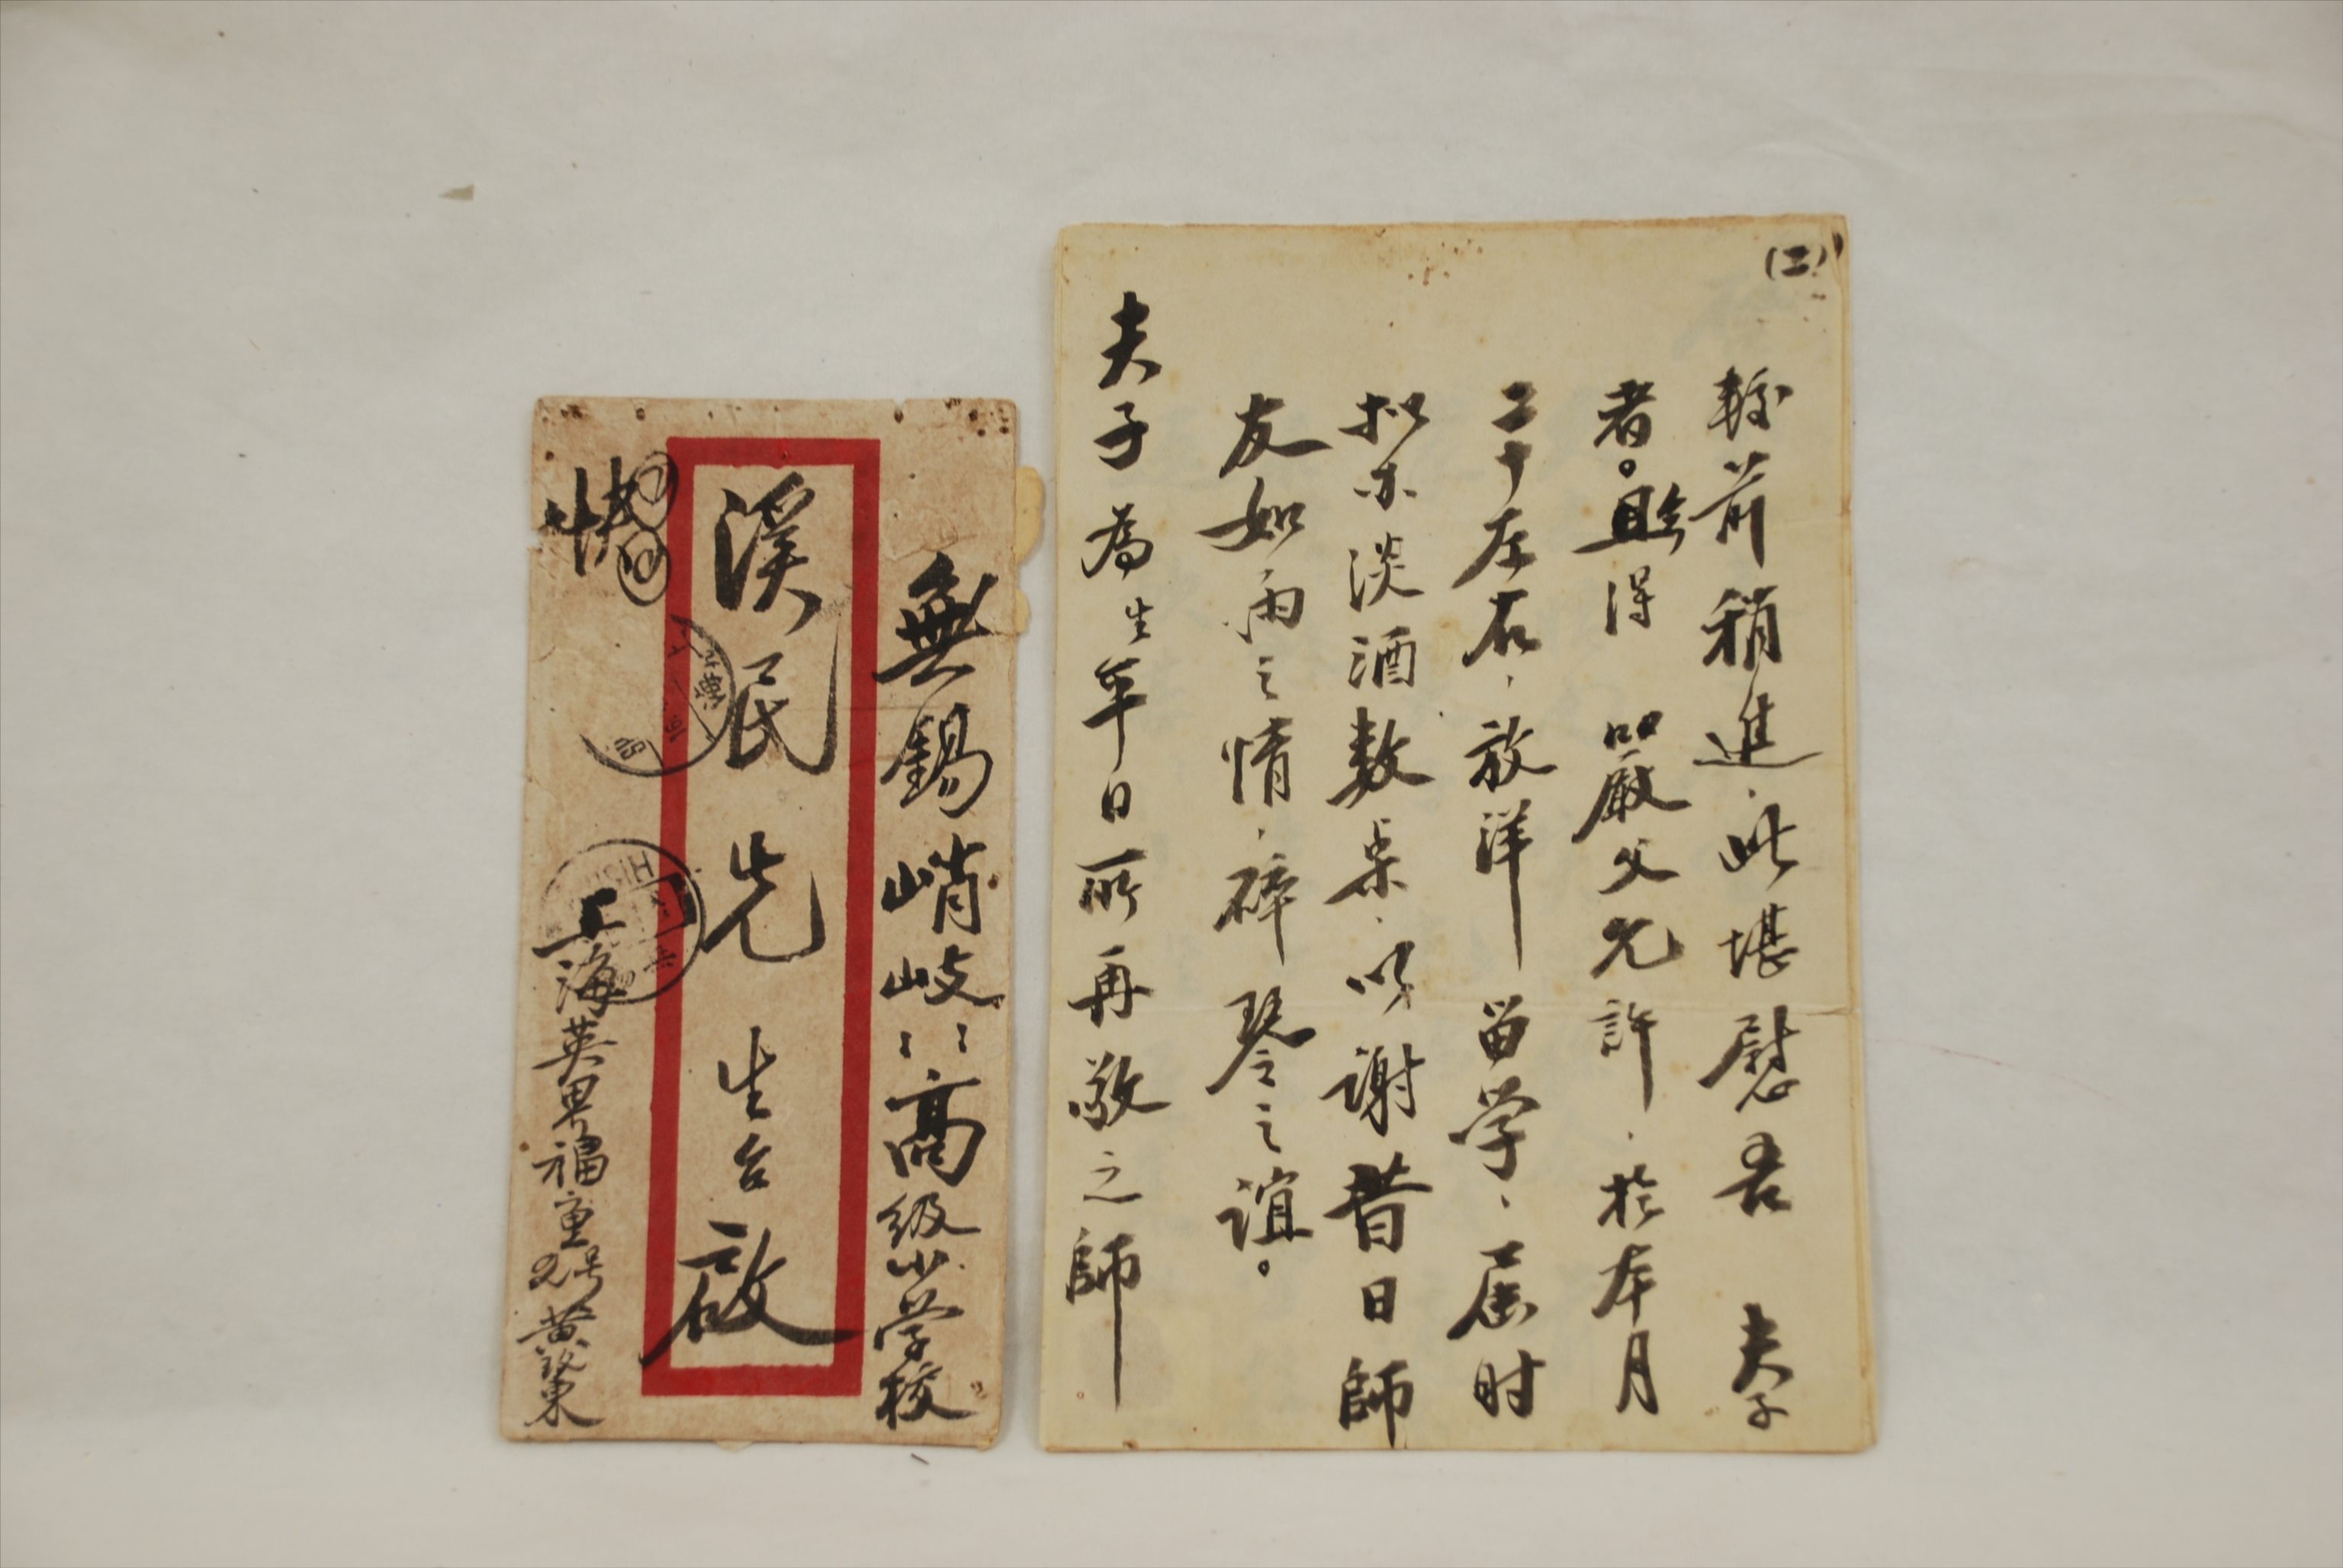 (二)
較前稍進、此堪慰吾 夫子
者。且得 嚴父允許、於本月
二十左右、放洋留学、屆时
拟亦淡酒数桌、以谢昔日師
友如雨之情、碎琴之誼。
夫子為生平日所再敬之師
無錫峭岐〻〻高級小学校
溪民先生台啟
快
上海英界福
号黄